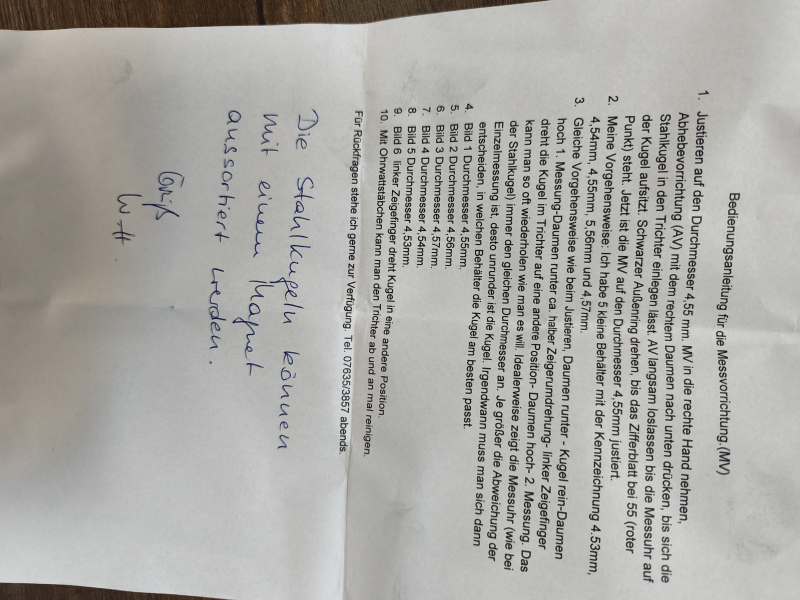 Bedienungsanleitung für die Messvorrichtung.(MV)
1. Justieren auf den Durchmesser 4,55 mm. MV in die rechte Hand nehmen,
Abhebevorrichtung (AV) mit dem rechtem Daumen nach unten drücken, bis sich die
Stahlkugel in den Trichter einlegen lässt. AV langsam loslassen bis die Messuhr auf
der Kugel aufsitzt. Schwarzer Außenring drehen, bis das Zifferblatt bei 55 (roter
Punkt) steht. Jetzt ist die MV auf den Durchmesser 4,55mm justiert.
2. Meine Vorgehensweise: Ich habe 5 kleine Behälter mit der Kennzeichnung 4.53mm,
4,54mm, 4,55mm, 5,56mm und 4,57mm.
3. Gleiche Vorgehensweise wie beim Justieren, Daumen runter - Kugel rein-Daumen
hoch 1. Messung-Daumen runter ca. halber Zeigerumdrehung- linker Zeigefinger
dreht die Kugel im Trichter auf eine andere Position- Daumen hoch- 2. Messung. Das
kann man so oft wiederholen wie man es will. Idealerweise zeigt die Messuhr (wie bei
der Stahlkugel) immer den gleichen Durchmesser an. Je größer die Abweichung der
Einzelmessung ist, desto unrunder ist die Kugel. Irgendwann muss man sich dann
entscheiden, in welchen Behälter die Kugel am besten passt.
4. Bild 1 Durchmesser 4,55mm.
5. Bild 2 Durchmesser 4,56mm.
6. Bild 3 Durchmesser 4,57mm.
7. Bild 4 Durchmesser 4,54mm.
8. Bild 5 Durchmesser 4,53mm.
9. Bild 6 linker Zeigefinger dreht Kugel in eine andere Position.
10. Mit Ohrwattstäbchen kann man den Trichter ab und an mal reinigen.
Für Rückfragen stehe ich gerne zur Verfügung. Tel. 07635/3857 abends.
Die Stahlkugeln können
mit einem Magnet
aussortiert werden.
Gruß